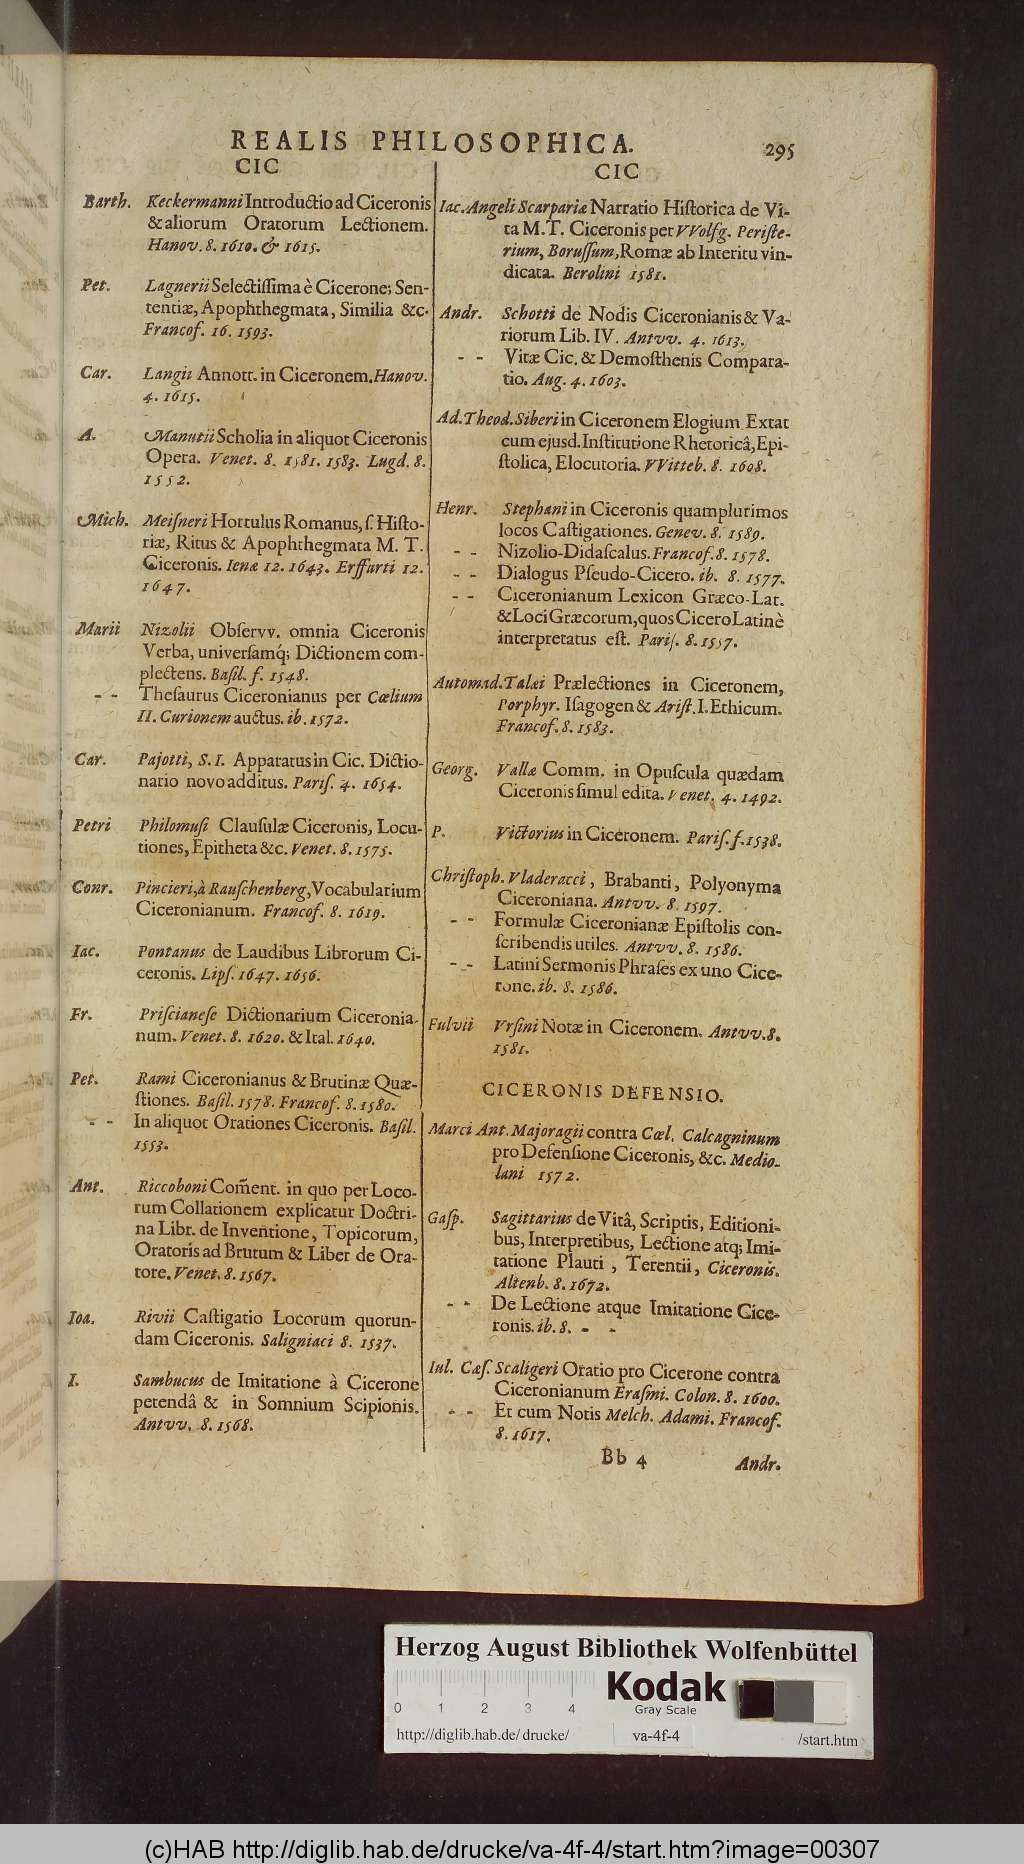 REALIS PHILOSOPHICA. 295
CIC
Barth. Keckermanni Introductio ad Ciceronis
& aliorum Oratorum Lectionem.
Hanov. 8. 1610. & 1615.
Pet. Lagnerii Selectiſſima è Cicerone; Sen-
tentiæ, Apophthegmata, Similia &c.
Francof. 16. 1593.
Car. Langii Annott. in Ciceronem. Hanov.
4. 1615.
A. Manutii Scholia in aliquot Ciceronis
Opera. Venet. 8. 1581. 1583. Lugd. 8.
1552.
Mich. Meiſneri Hortulus Romanus, ſ. Hiſto-
riæ, Ritus & Apophthegmata M. T.
Ciceronis. Ienæ 12. 1643. Erffurti 12.
1647.
Marii Nizolii Obſervv. omnia Ciceronis
Verba, univerſamq́; Dictionem com-
plectens. Baſil. f. 1548.
- - Theſaurus Ciceronianus per Cælium
II. Curionem auctus. ib. 1572.
Car. Pajotti, S. I. Apparatus in Cic. Dictio-
nario novo additus. Pariſ. 4. 1654.
Petri Philomuſi Clauſulæ Ciceronis, Locu-
tiones, Epitheta &c. Venet. 8. 1575.
Conr. Pincieri, à Rauſchenberg, Vocabularium
Ciceronianum. Francof. 8. 1619.
Iac. Pontanus de Laudibus Librorum Ci-
ceronis. Lipſ. 1647. 1656.
Fr. Priſcianeſe Dictionarium Ciceronia-
num. Venet. 8. 1620. & Ital. 1640.
Pet. Rami Ciceronianus & Brutinæ Quæ-
ſtiones. Baſil. 1578. Francof. 8. 1580.
- - In aliquot Orationes Ciceronis. Baſil.
1553.
Ant. Riccoboni Com̃ent. in quo per Loco-
rum Collationem explicatur Doctri-
na Libr. de Inventione, Topicorum,
Oratoris ad Brutum & Liber de Ora-
tore. Venet. 8. 1567.
Ioa. Rivii Caſtigatio Locorum quorun-
dam Ciceronis. Saligniaci 8. 1537.
I. Sambucus de Imitatione à Cicerone
petendâ & in Somnium Scipionis.
Antvv. 8. 1568.
CIC
Iac. Angeli Scarpariæ Narratio Hiſtorica de Vi-
ta M. T. Ciceronis per VVolfg. Periſte-
rium, Boruſſum, Romæ ab Interitu vin-
dicata. Berolini 1581.
Andr. Schotti de Nodis Ciceronianis & Va-
riorum Lib. IV. Antvv. 4. 1613.
- - Vitæ Cic. & Demoſthenis Compara-
tio. Aug. 4. 1603.
Ad. Theod. Siberi in Ciceronem Elogium Extat
cum ejusd. Inſtitutione Rhetoricâ, Epi-
ſtolica, Elocutoria. VVitteb. 8. 1608.
Henr. Stephani in Ciceronis quamplurimos
locos Caſtigationes. Genev. 8. 1589.
- - Nizolio-Didaſcalus. Francof. 8. 1578.
- - Dialogus Pſeudo-Cicero. ib. 8. 1577.
- - Ciceronianum Lexicon Græco-Lat.
& Loci Græcorum, quos Cicero Latinè
interpretatus eſt. Pariſ. 8. 1557.
Automad. Talæi Prælectiones in Ciceronem,
Porphyr. Iſagogen & Ariſt. I. Ethicum.
Francof. 8. 1583.
Georg. Vallæ Comm. in Opuſcula quædam
Ciceronis ſimul edita. Venet. 4. 1492.
P. Victorius in Ciceronem. Pariſ. f. 1538.
Chriſtoph. Vladeracci, Brabanti, Polyonyma
Ciceroniana. Antvv. 8. 1597.
- - Formulæ Ciceronianæ Epiſtolis con-
ſcribendis utiles. Antvv. 8. 1586.
- - Latini Sermonis Phraſes ex uno Cice-
rone. ib. 8. 1586.
Fulvii Vrſini Notæ in Ciceronem. Antvv. 8.
1581.
CICERONIS DEFENSIO.
Marci Ant. Majoragii contra Cæl. Calcagninum
pro Defenſione Ciceronis, &c. Medio-
lani 1572.
Gaſp. Sagittarius de Vitâ, Scriptis, Editioni-
bus, Interpretibus, Lectione atq; Imi-
tatione Plauti, Terentii, Ciceronis.
Altenb. 8. 1672.
- - De Lectione atque Imitatione Cice-
ronis. ib. 8. - -
Iul. Cæſ. Scaligeri Oratio pro Cicerone contra
Ciceronianum Eraſmi. Colon. 8. 1600.
- - Et cum Notis Melch. Adami. Francof.
8. 1617.
Bb 4 Andr.
Herzog August Bibliothek Wolfenbüttel
0 1 2 3 4
Kodak
Gray Scale
http://diglib.hab.de/drucke/ va-4f-4 /start.htm
(c)HAB http://diglib.hab.de/drucke/va-4f-4/start.htm?image=00307